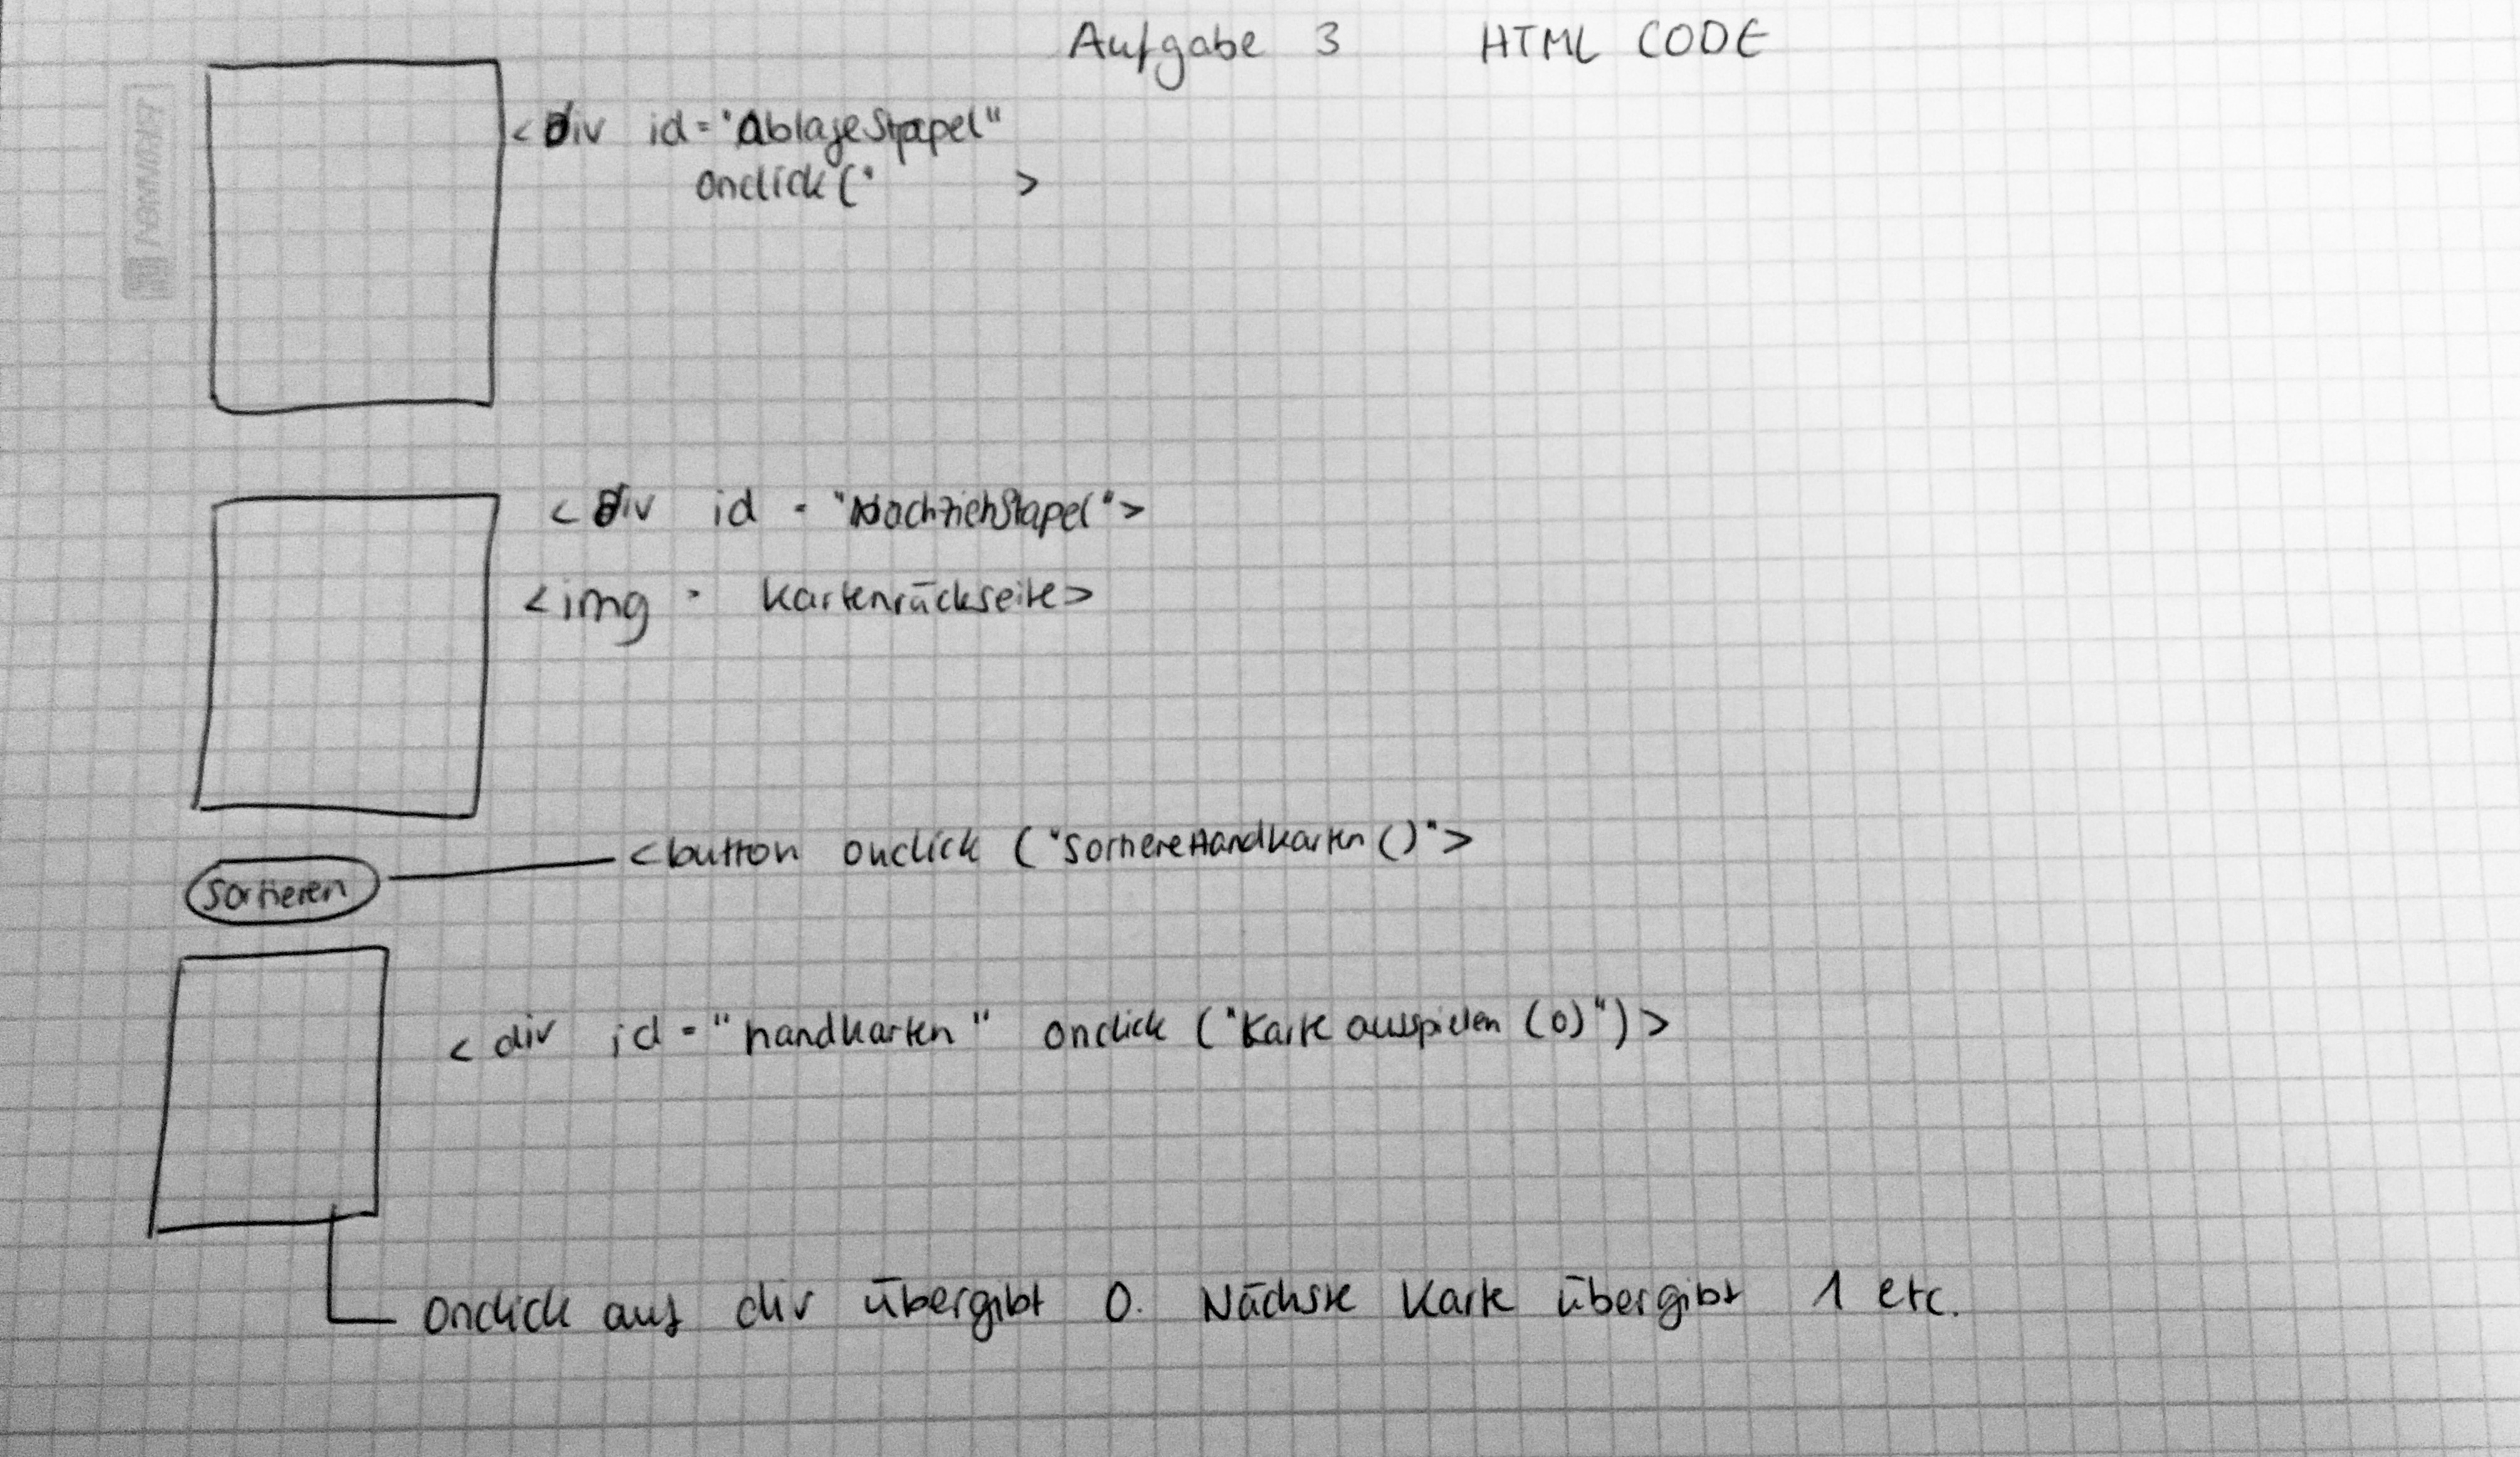 Aufgabe 3 HTML CODE
<div id="AblageStapel"
onclick("    >
<div id = "NachziehStapel">
<img = Kartenrückseite>
<button onclick ("SortiereHandkarten()">
Sortieren
<div id="handkarten" onclick ("Karte ausspielen (0)")>
onclick auf div übergibt 0. Nächste Karte übergibt 1 etc.